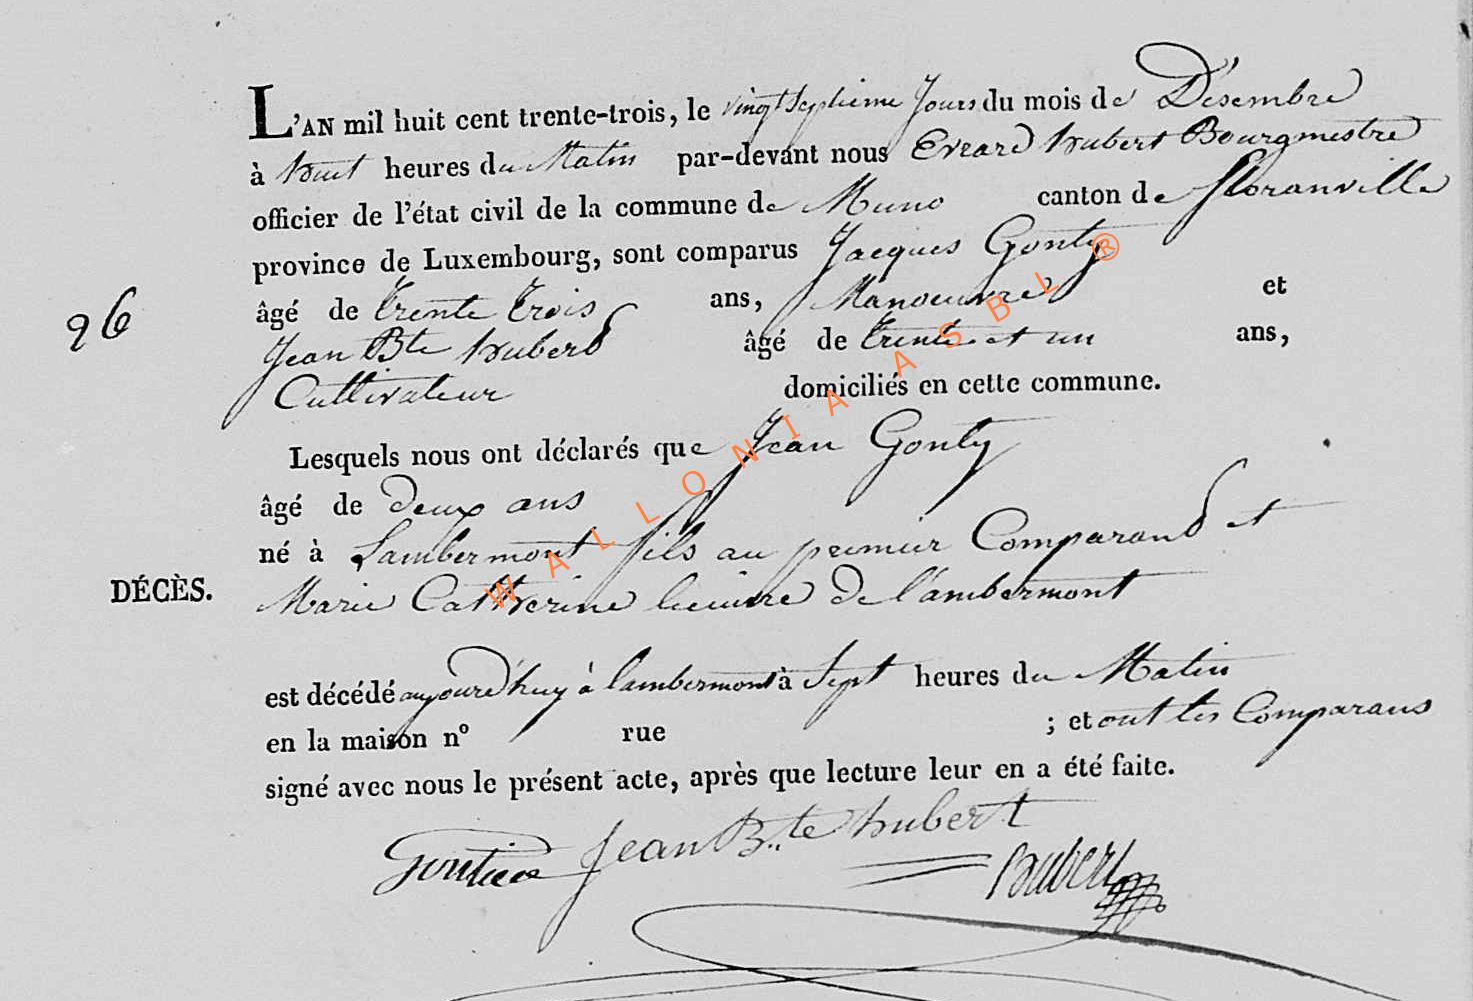 L'AN mil huit cent trente-trois, le vingt Septieme Jours du mois de Désembre
à huit heures du Matin par-devant nous Evrard hubert Bourgmestre
officier de l'état civil de la commune de Muno canton de floranville
province de Luxembourg, sont comparus Jacques Gonty
âgé de trente trois ans, Manoeuvre et
26
Jean Bte huberd âgé de trente et un ans,
Cultivateur domiciliés en cette commune.
Lesquels nous ont déclarés que Jean Gonty
âgé de deux ans
né à Lambermont fils au premier Comparand et
DÉCÈS.
Marie Catherine de lambermont
est décédé aujourd'huy à lambermont à Sept heures du Matin
en la maison nº rue ; et ont les Comparans
signé avec nous le présent acte, après que lecture leur en a été faite.
Jean B..te hubert
hubert
WALLONIA ASBL ®